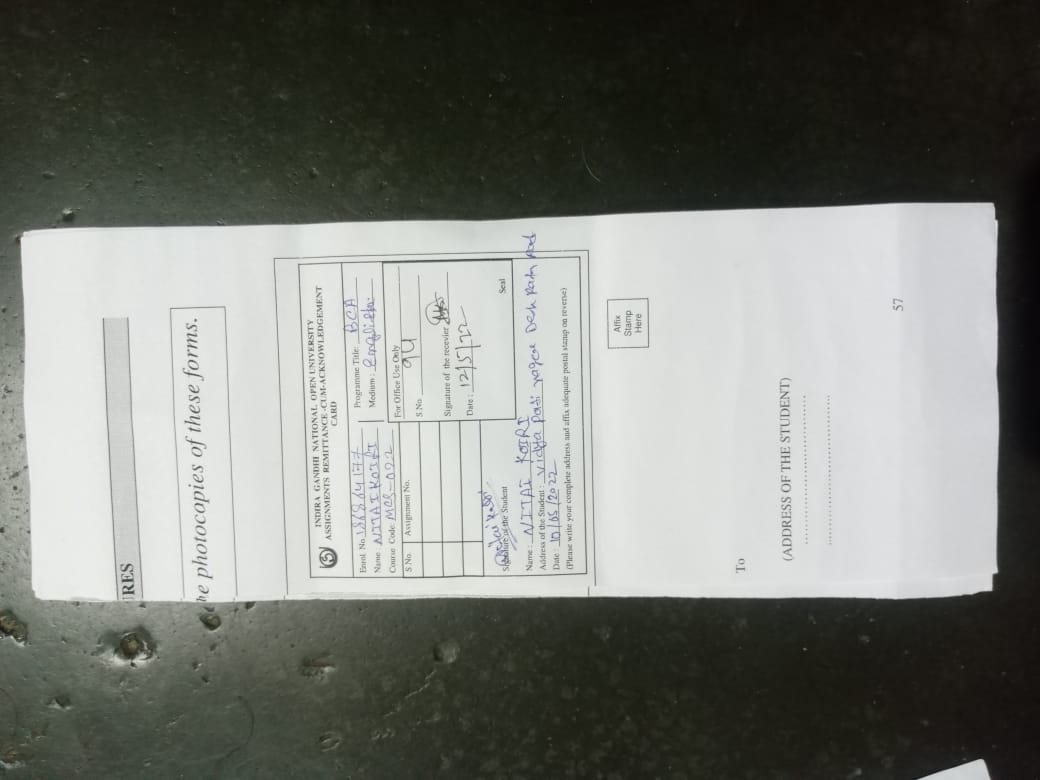 RES
he photocopies of these forms.
INDIRA GANDHI NATIONAL OPEN UNIVERSITY
ASSIGNMENTS REMITTANCE-CUM-ACKNOWLEDGEMENT
CARD
Enrol No. Programme Title: BCA
Name: NITAI KOIRI Medium: English
Course Code: MCS-022
For Office Use Only
S.No. Assignment No. S.No. 94
Signature of the recevier
Date: 12/5/22
Signature of the Student Seal
Name: NITAI KOIRI
Address of the Student: Vidya Pati nagar Desh Road
Date: 10/05/2022
(Please write your complete address and affix adequate postal stamp on reverse)
Affix
Stamp
Here
To
(ADDRESS OF THE STUDENT)
57